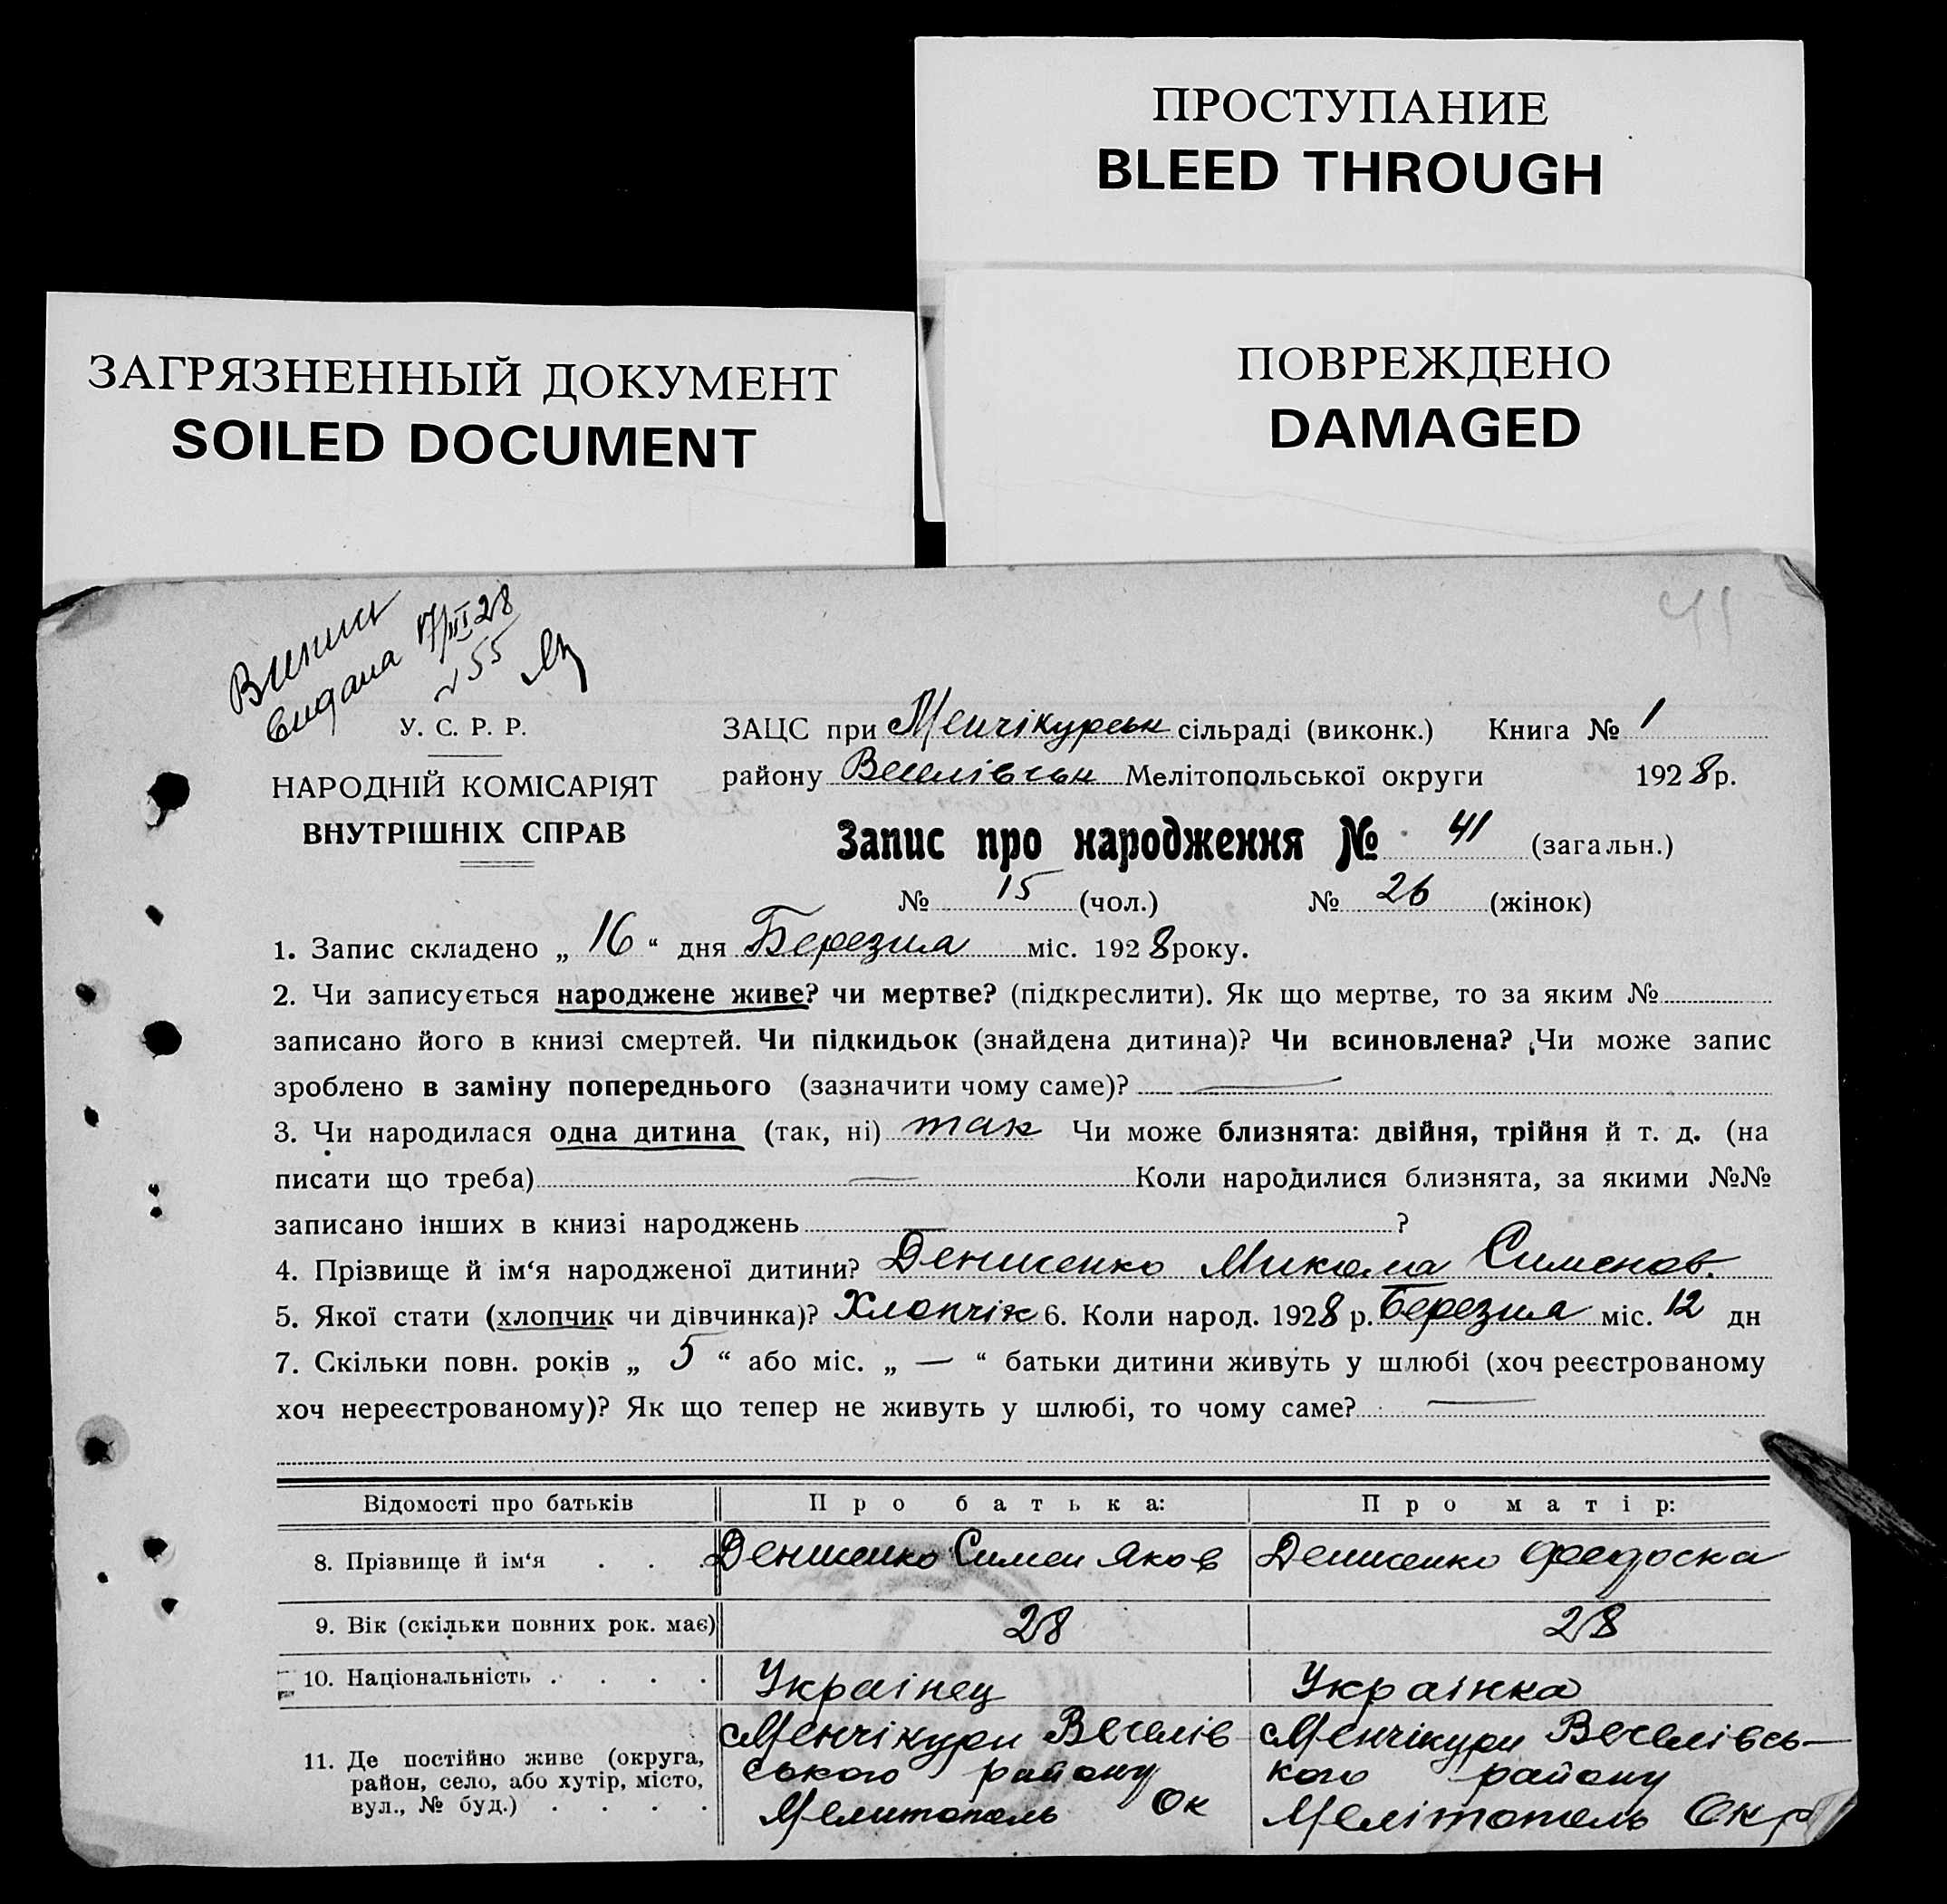 ПРОСТУПАНИЕ
BLEED THROUGH
ЗАГРЯЗНЕННЫЙ ДОКУМЕНТ
SOILED DOCUMENT
ПОВРЕЖДЕНО
DAMAGED
41
Випись
видана 17/III 28
№ 55
У. С. Р. Р.
НАРОДНІЙ КОМІСАРІЯТ
ВНУТРІШНІХ СПРАВ
ЗАЦС при Менчікурськ сільраді (виконк.) Книга № 1
району Веселівськ Мелітопольської округи 1928 р.
Запис про народження № 41 (загальн.)
№ 15 (чол.) № 26 (жінок)
1. Запис складено „ 16 “ дня Березіля міс. 1928 року.
2. Чи записується народжене живе? чи мертве? (підкреслити). Як що мертве, то за яким №
записано його в книзі смертей. Чи підкидьок (знайдена дитина)? Чи всиновлена? Чи може запис
зроблено в заміну попереднього (зазначити чому саме)? —
3. Чи народилася одна дитина (так, ні) так Чи може близнята: двійня, трійня й т. д. (на
писати що треба) — Коли народилися близнята, за якими №№
записано інших в книзі народжень — ?
4. Прізвище й ім‘я народженої дитини? Денисенко Микола Сименов.
5. Якої стати (хлопчик чи дівчинка)? Хлопчік 6. Коли народ. 1928 р. Березіля міс. 12 дн
7. Скільки повн. років „ 5 “ або міс. „ — “ батьки дитини живуть у шлюбі (хоч реєстрованому
хоч нереєстрованому)? Як що тепер не живуть у шлюбі, то чому саме? —
Відомості про батьків Про батька: Про матір:
8. Прізвище й ім‘я . . . Денисенко Симен Яков Денисенко Феодоска
9. Вік (скільки повних рок. має) 28 28
10. Національність . . . . Украінец Украінка
11. Де постійно живе (округа, район, село, або хутір, місто, вул., № буд.) . . . .
Менчікури Веселів
ського району
Мелитополь Ок
Менчікури Веселівсь—
кого району
Мелітополь Окр